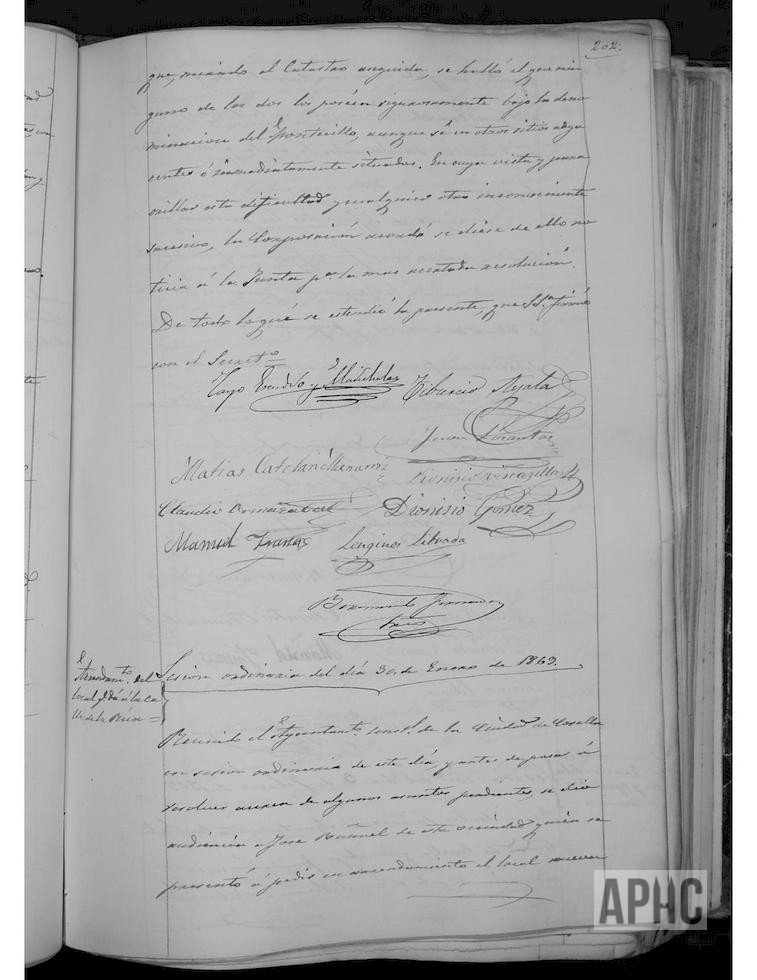 202.
que, mirando el Catastro seguida, se halló el que nin
guno de los dos los poséen rigurosamente bajo la deno
minacion del Pontecillo, aunque sí en otros sitios adya
centes ó inmediatamente situados. En cuya vista y para
orillar esta dificultad y cualquiera otro inconveniente
sucesivo, la Corporación acordó se diése de ello no
ticia á la Junta pª. la mas acertada resolución.
De todo lo qué se estendió la presente, que Sª. firmó
con el Secretº =
Cayo Escudero y Marichalar Tiburcio Ayala
Juan
Matias Catalan Dionisio
Claudio Dionisio Gomez
Manuel Longinos
Bermundo
Arrendamtº. del
local qe. dá á la ca
lle de la =
Sesion ordinaria del día 30 de Enero de 1862.
Reunido el Ayuntamtº. constl. de la Ciudad de Corella
en sesion ordinaria de este día, y antes de pasar á
resolver acerca de algunos asuntos pendientes, se dió
audiéncia a José Buñuel de esta vecindad quién se
presentó á pedir en arrendamiento el local
APHC